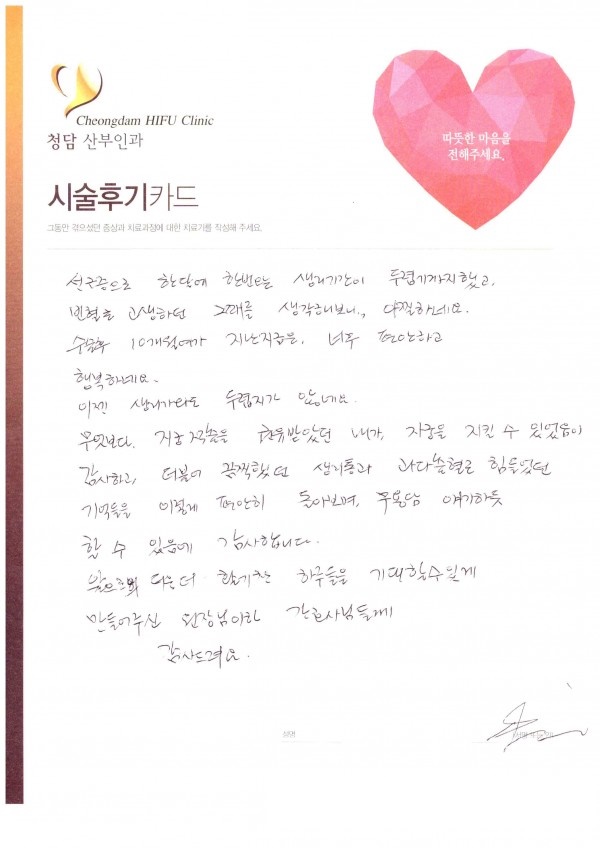 Cheongdam HIFU Clinic
청담 산부인과
따뜻한 마음을
전해주세요.
시술후기카드
그동안 겪으셨던 증상과 치료과정에 대한 치료기를 작성해 주세요.
선근증으로 한달에 한번오는 생리기간이 두렵기까지했고,
빈혈로 고생하던 그때를 생각해보니, 아찔하네요.
수술후 10개월여가 지난지금은, 너무 편안하고
행복하네요.
이젠 생리가와도 두렵지가 않네요.
무엇보다. 자궁적출을 권유받았던 내가, 자궁을 지킬 수 있었음이
감사하고, 더불어 끔찍했던 생리통과 과다출혈로 힘들었던
기억들을 이렇게 편안히 돌아보며, 무용담 얘기하듯
할 수 있음에 감사합니다.
앞으로의 더 활기찬 하루들을 기대할수있게
만들어주신 원장님이하 간호사님들께
감사드려요.
성명